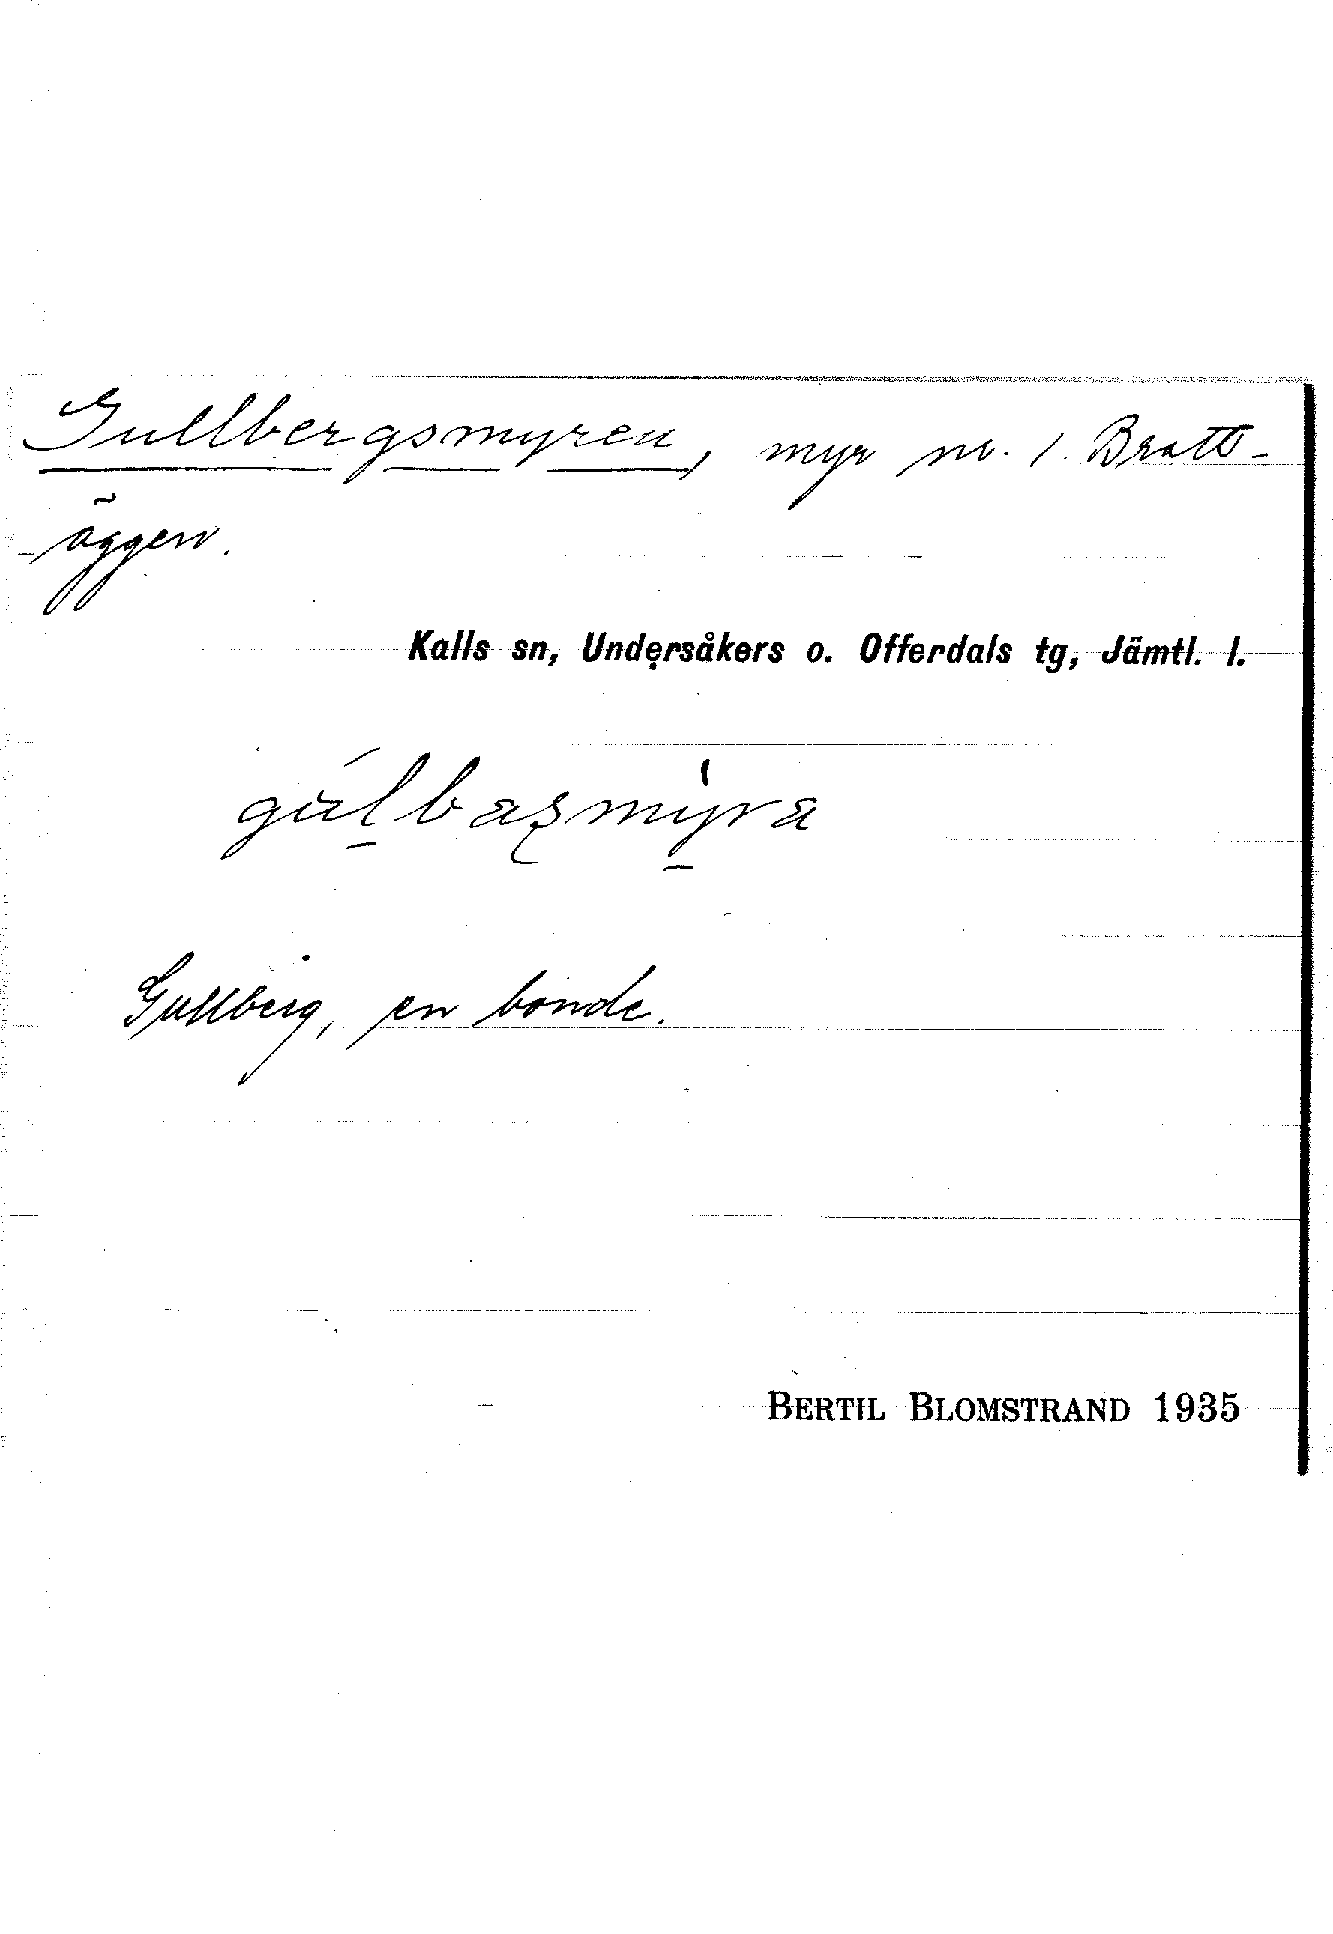 Gullbergsmyren, myr nv. 1. Bratt-
äggen.
Kalls sn, Undersåkers o. Offerdals tg, Jämtl. l.
gúlbaʂmýra
Gullberg, en bonde.
BERTIL BLOMSTRAND 1935